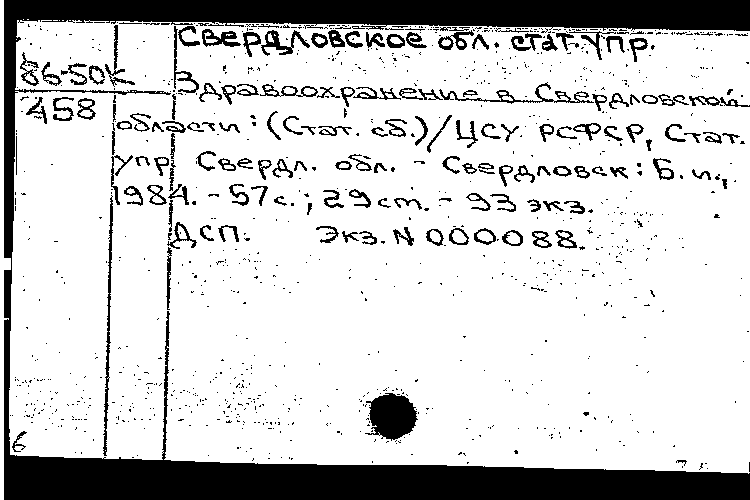 Свердловское обл. стат. упр.
86-50к Здравоохранение в Свердловской
458 области : (Стат. сб.) / ЦСУ РСФСР, Стат.
упр. Свердл. обл. - Свердловск : Б. и.,
1984. - 57 с. ; 29 cm. - 93 экз.
ДСП. Экз. N 000088.
6